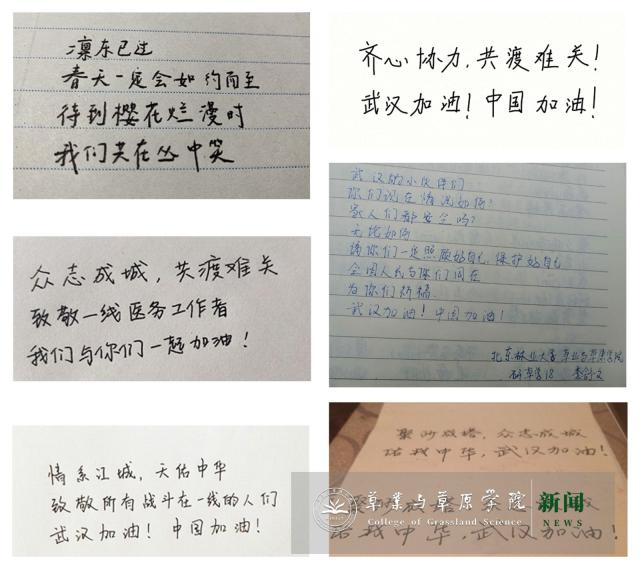 凛东已过
春天一定会如约而至
待到樱花烂漫时
我们共在丛中笑
众志成城，共渡难关
致敬一线医务工作者
我们与你们一起加油！
情系江城，天佑中华
致敬所有战斗在一线的人们
武汉加油！中国加油！
齐心协力，共渡难关！
武汉加油！中国加油！
武汉的小伙伴们
你们现在情况如何？
家人们都安全吗？
无论如何
请你们一定照顾好自己、保护好自己
全国人民与你们同在
为你们祈福
武汉加油！中国加油！
北京林业大学 草业与草原学院
研草学18
聚沙成塔，众志成城
佑我中华，武汉加油！
草業与草原学院 新闻
College of Grassland Science NEWS
佑我中华，武汉加油！